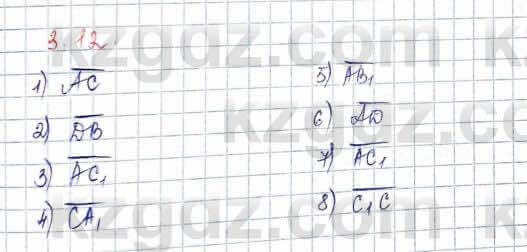 3.12
1) A̅C̅
2) D̅B̅
3) A̅C̅₁
4) C̅A̅₁
5) A̅B̅₁
6) A̅D̅
7) A̅C̅₁
8) C̅₁C̅
kzgdz.com
kzgdz.com
kzgdz.com